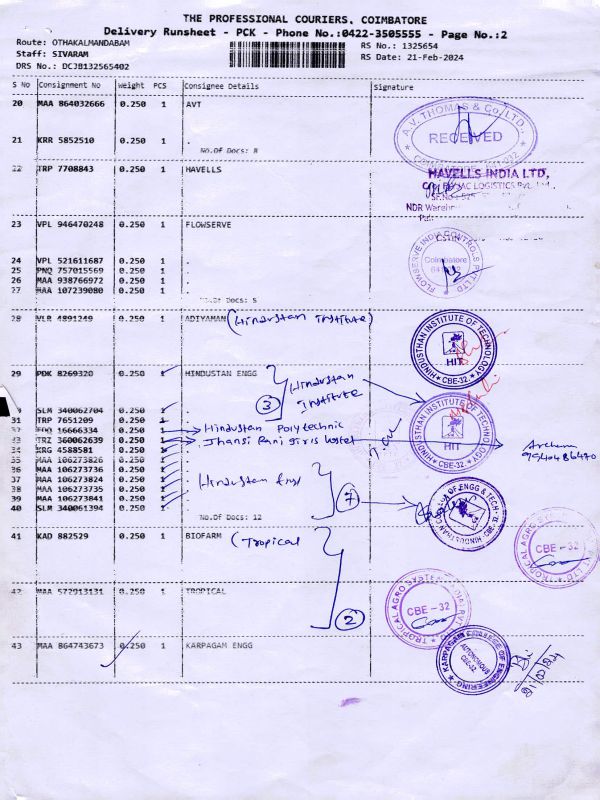 THE PROFESSIONAL COURIERS, COIMBATORE
Delivery Runsheet - PCK - Phone No.:0422-3505555 - Page No.:2
Route: OTHAKALMANDABAM
RS No.: 1325654
Staff: SIVARAM
RS Date: 21-Feb-2024
DRS No.: DCJB132565402
S No Consignment No Weight PCS Consignee Details Signature
20 MAA 864032666 0.250 1 AVT
A.V. THOMAS & Co LTD.,
RECEIVED
21 KRR 5852510 0.250 1 .
No.Of Docs: 8
22 TRP 7708843 0.250 1 HAVELLS
HAVELLS INDIA LTD,
LOGISTICS PVT.
NDR
23 VPL 946470248 0.250 1 FLOWSERVE
FLOWSERVE INDIA CONTROLS PVT LTD
Coimbatore
24 VPL 521611687 0.250 1 .
25 PNQ 757015569 0.250 1 .
26 MAA 938766972 0.250 1 .
27 MAA 107239080 0.250 1 .
No.Of Docs: 5
28 VLR 4891249 0.250 1 ADIYAMAN (Hindustan institute)
HINDUSTHAN INSTITUTE OF TECHNOLOGY
HIT
CBE-32
29 PDK 8269320 0.250 1 HINDUSTAN ENGG
Hindustan
Institute
3
SLM 340062704 0.250 1 .
31 TRP 7651209 0.250 1 .
16666334 0.250 1 Hindustan Polytechnic
33 TRZ 360062639 0.250 1 Jhansi Rani girls hostel
HINDUSTHAN INSTITUTE OF TECHNOLOGY
HIT
CBE-32
Archana
9940486470
34 KRG 4588581 0.250 1 .
35 MAA 106273826 0.250 1 .
36 MAA 106273736 0.250 1 .
37 MAA 106273824 0.250 1 Hindustan Engg
38 MAA 106273735 0.250 1 .
39 MAA 106273841 0.250 1 .
7
40 SLM 340061394 0.250 1 .
No.Of Docs: 12
OF ENGG & TECH
41 KAD 882529 0.250 1 BIOFARM (Tropical
TROPICAL AGRO SYSTEM
CBE-32
42 MAA 572913131 0.250 1 TROPICAL
2
TROPICAL AGRO SYSTEM
CBE-32
43 MAA 864743673 0.250 1 KARPAGAM ENGG
KARPAGAM COLLEGE OF ENGINEERING
AUTONOMOUS
CBE-32
21/02/24